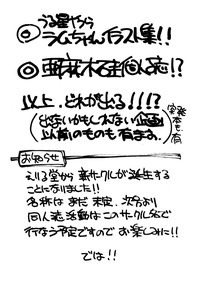 ◎うる星やつら
ラムちゃんイラスト集!!
◎亜麻木硅個人誌!?
以上、どれが出る!!!?
(出ないかもしれない企画
以前のものも有ます。)
実発本も有
お知らせ
えりる堂から新サークルが誕生する
ことになりました!!
名称はまだ未定、次号より
同人誌活動はこのサークル名で
行なう予定ですのでお楽しみに!!
では!!